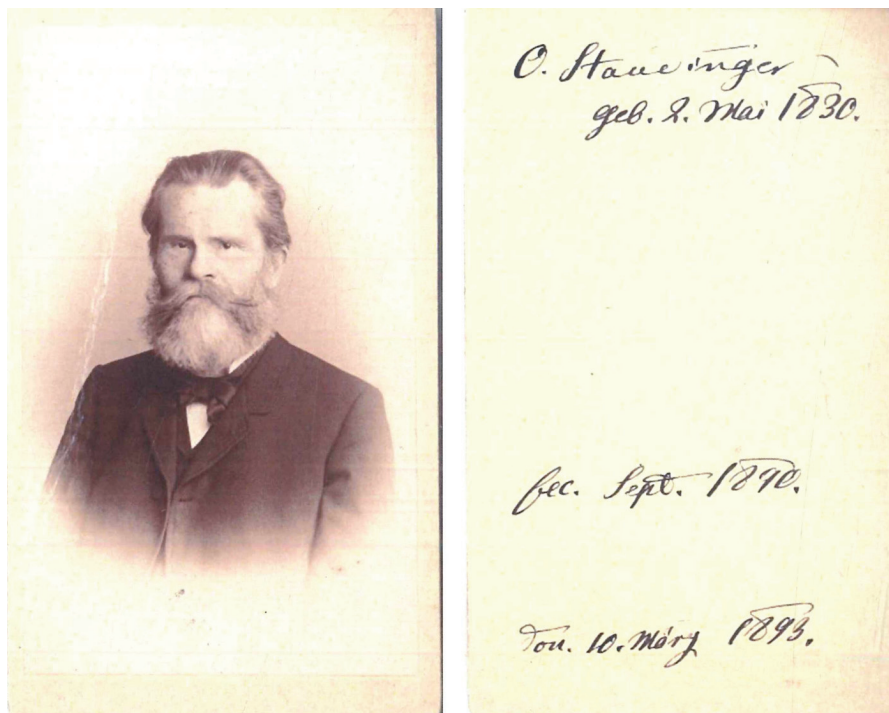 O. Staudinger
geb. 2. Mai 1830.
fec. Sept. 1890.
don. 10. März 1893.